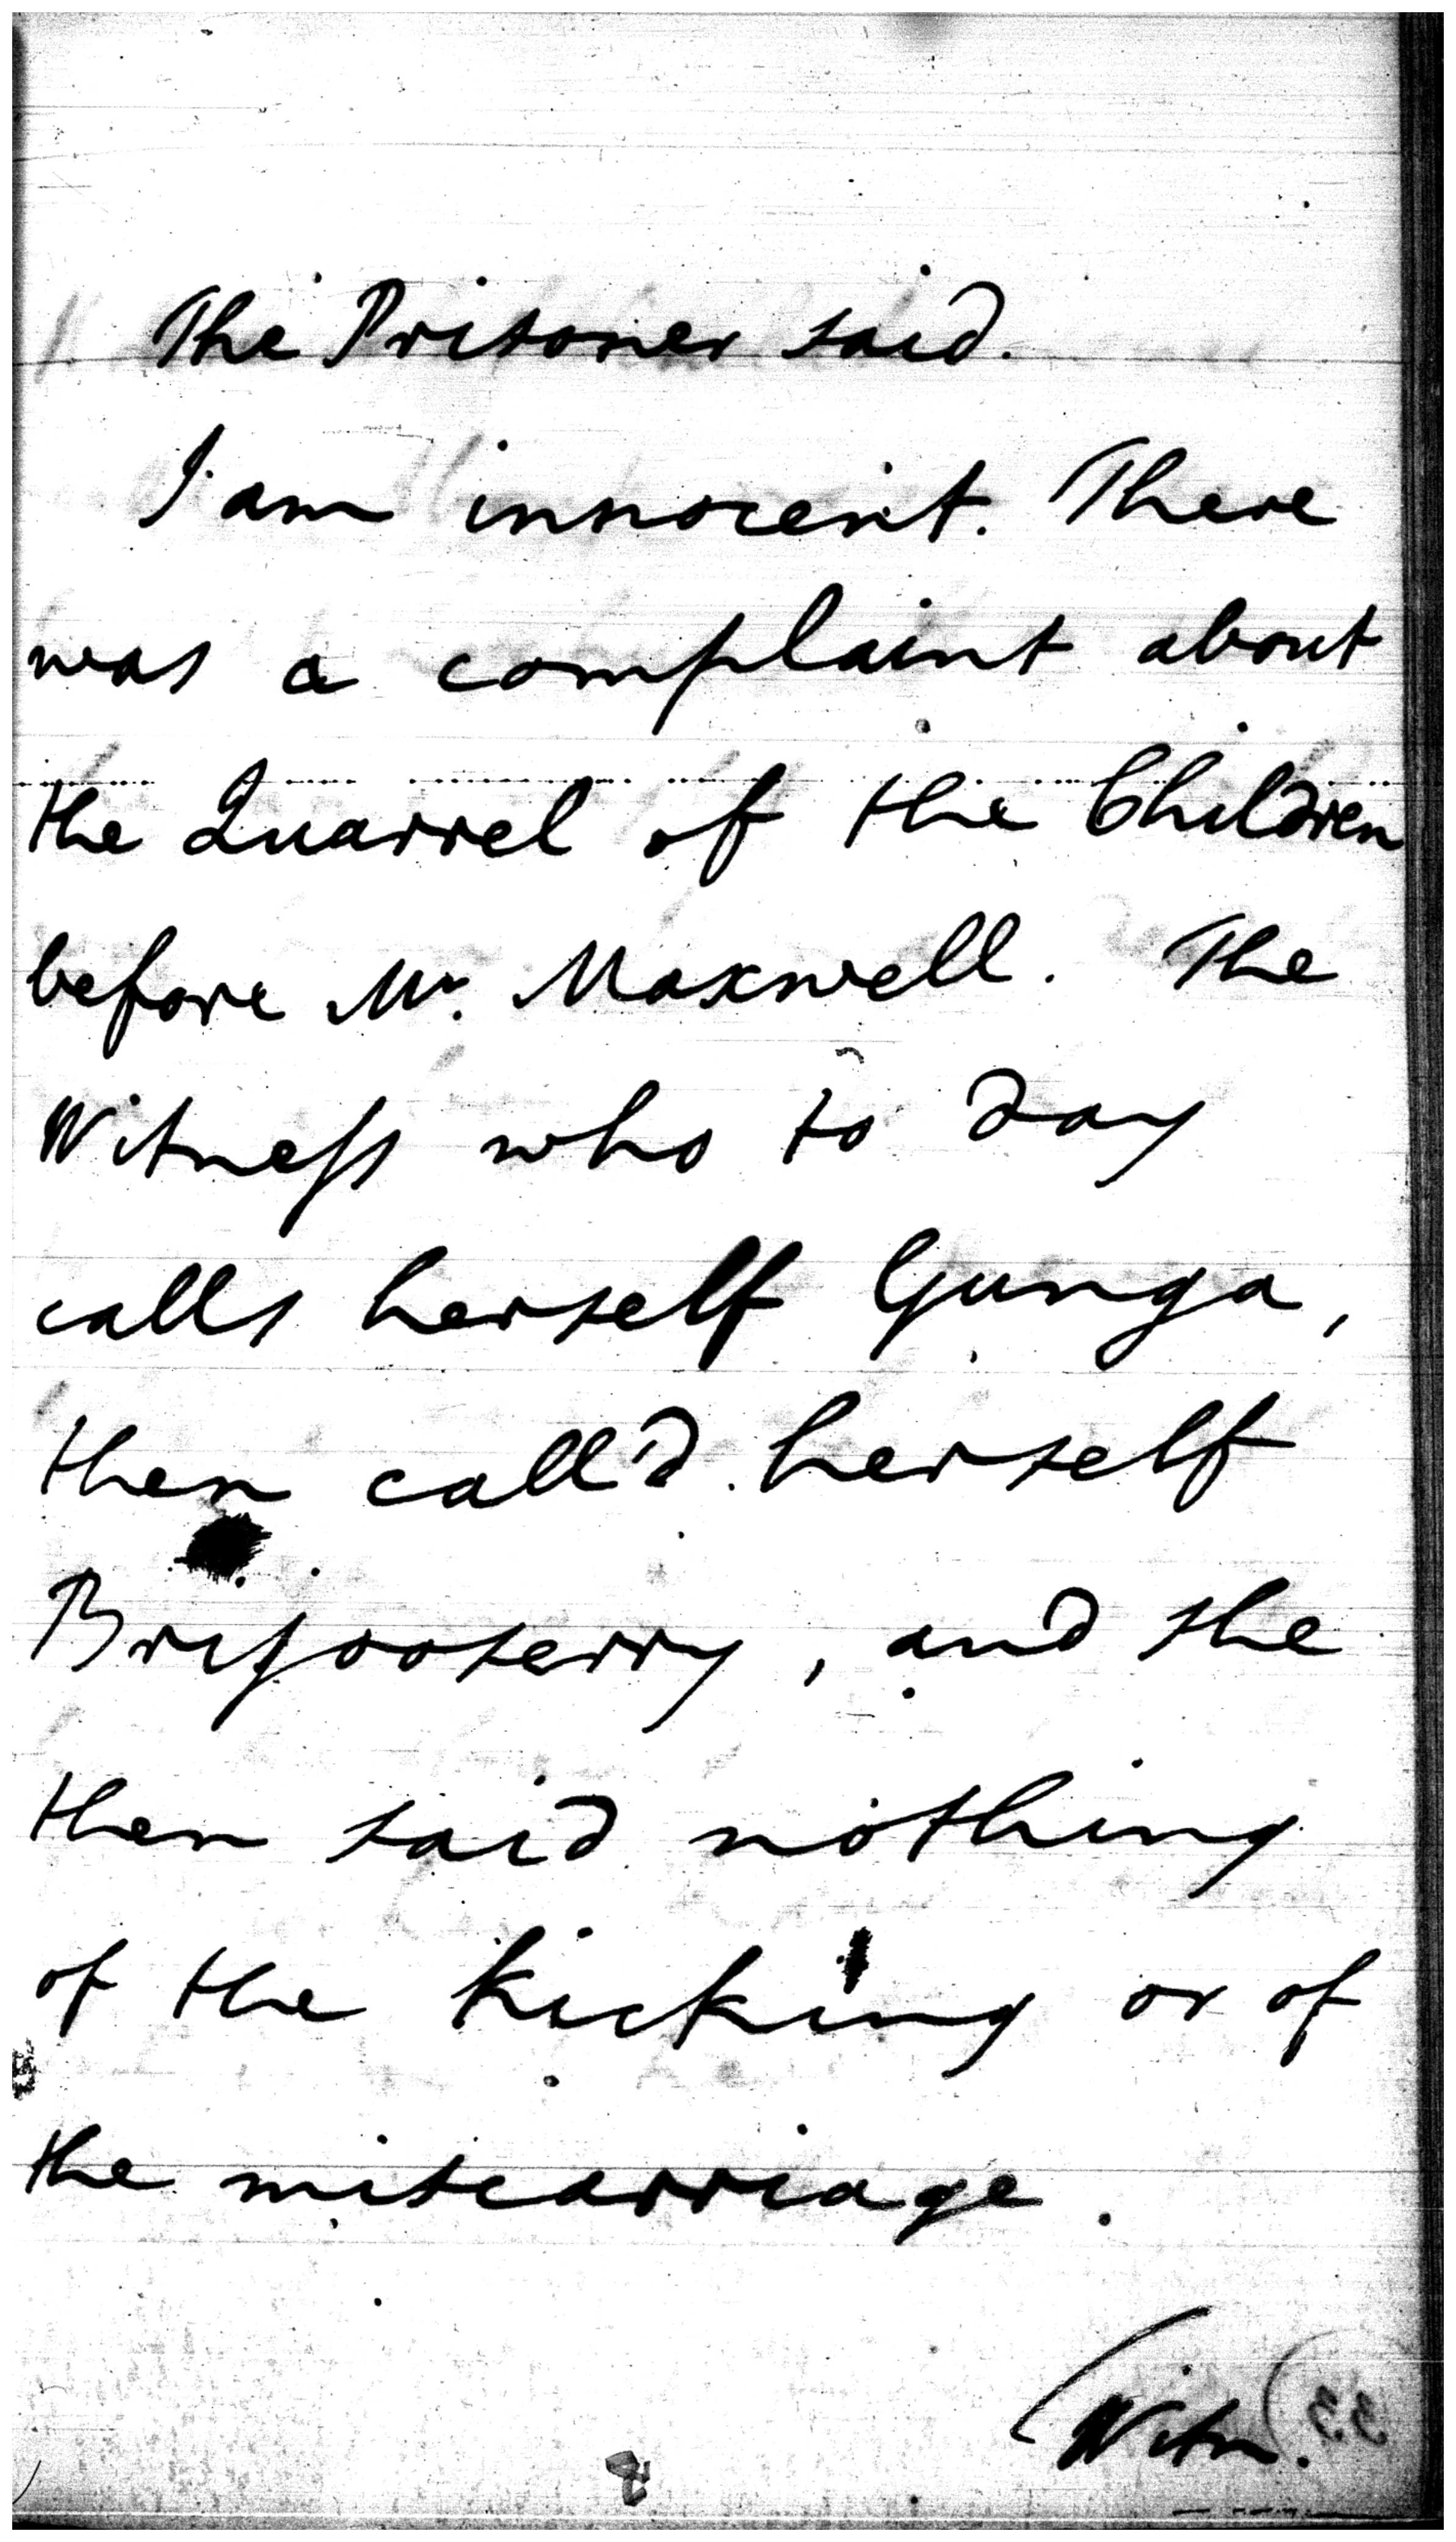 The Prisoner said.
I am innocent. There
was a complaint about
the Quarrel of the Children
before Mr. Maxwell. The
Witness who to day
calls herself Gunga,
then call'd herself
Brijooserry, and she
then said nothing
of the kicking or of
the miscarriage.
(Witn.